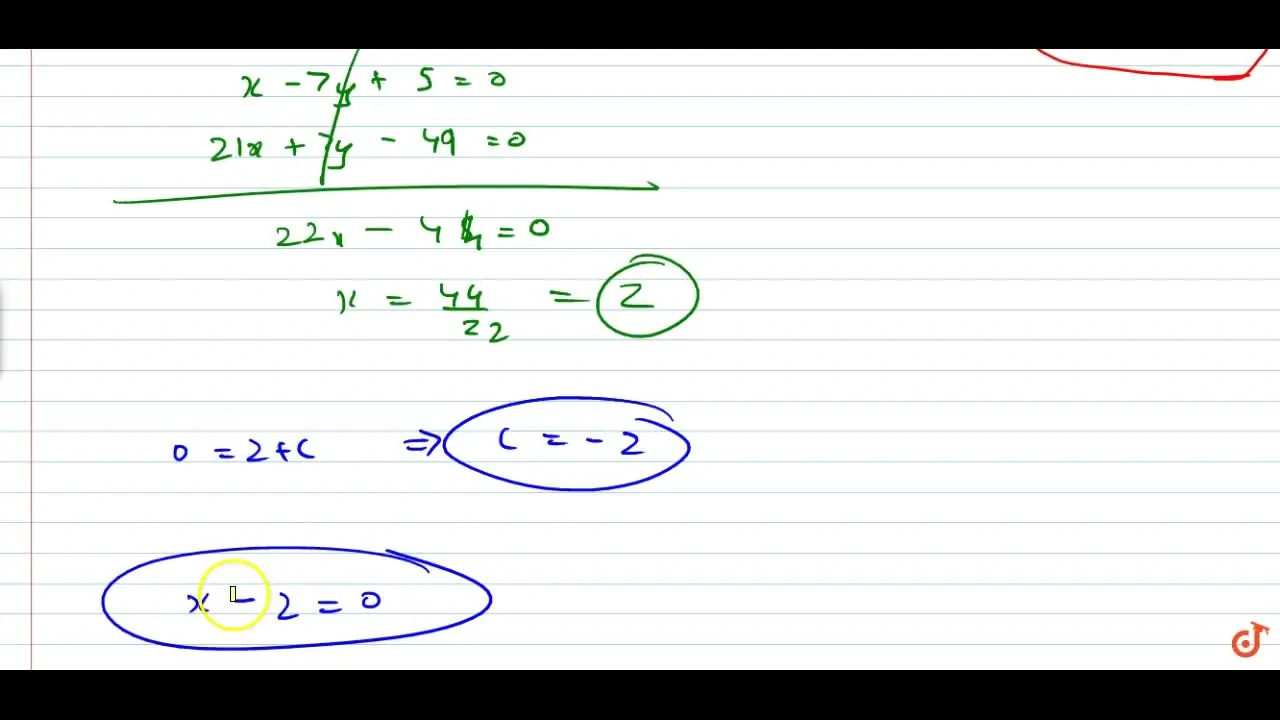 x - 7y + 5 = 0
21x + 7y - 49 = 0
22x - 44 = 0
x = 44/22 = 2
0 = 2 + c ⇒ c = - 2
x - 2 = 0